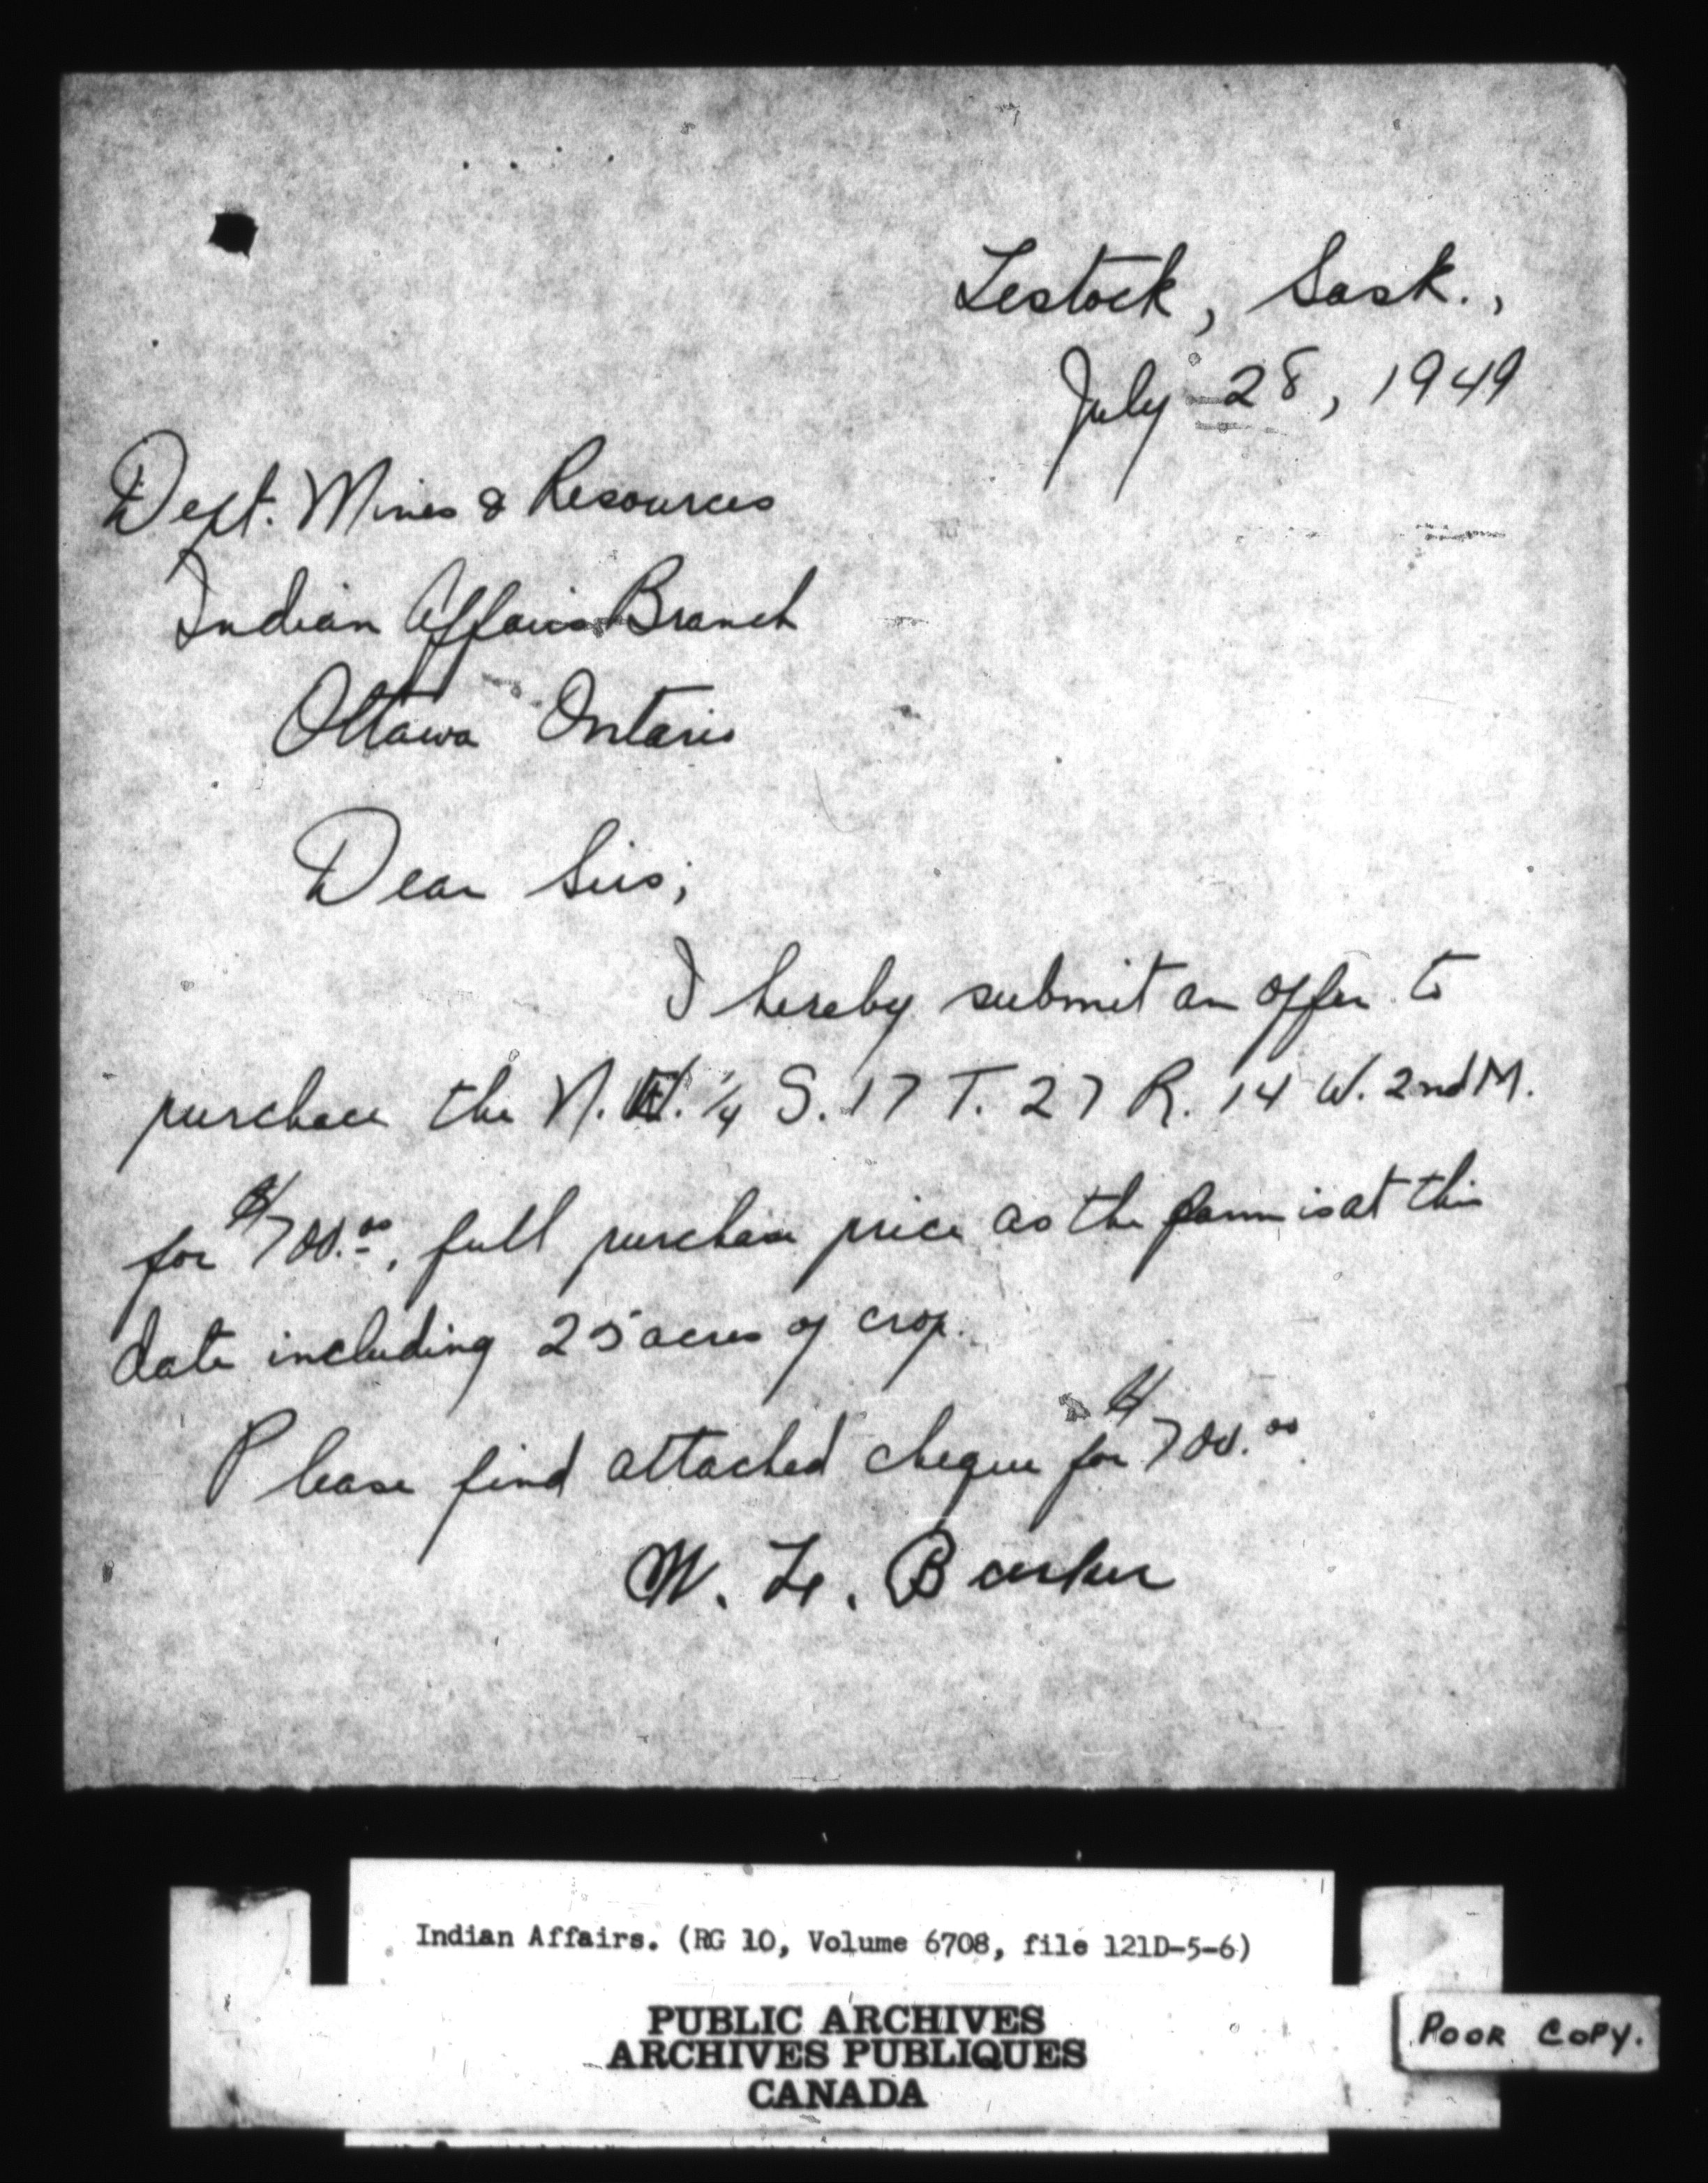 Lestock, Sask.,
July 28, 1949
Dept. Mines & Resources
Indian Affairs Branch
Ottawa Ontario
Dear Sirs;
I hereby submit an offer to
purchase the N. ¼ S. 17 T. 27 R. 14 W. 2nd M.
for $700.00, full purchase price as the farm is at this
date including 25 acres of crop.
Please find attached cheque for $700.00
W. L. Barker
Indian Affairs. (RG 10, Volume 6708, file 121D-5-6)
PUBLIC ARCHIVES
ARCHIVES PUBLIQUES
CANADA
POOR COPY.